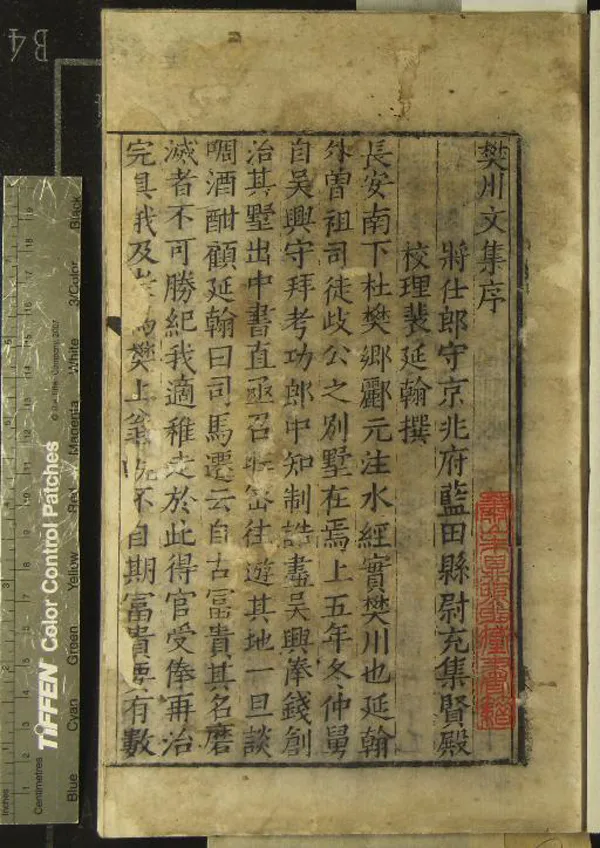 樊川文集序
將仕郎守京兆府藍田縣尉充集賢殿
校理裴延翰撰
長安南下杜樊鄉酈元注水經實樊川也延翰
外曾祖司徒歧公之別墅在焉上五年冬仲舅
自吳興守拜考功郎中知制誥盡吳興俸錢創
治其墅出中書直亟召昵密往遊其地一旦談
啁酒酣顧延翰曰司馬遷云自古富貴其名磨
滅者不可勝紀我適稚走於此得官受俸再治
完具我及 爲樊上翁 不自期富貴要有數
B4
Inches
Centimetres
TIFFEN Color Control Patches
© The Tiffen Company, 2007
Blue
Cyan
Green
Yellow
Red
Magenta
White
3/Color
Black